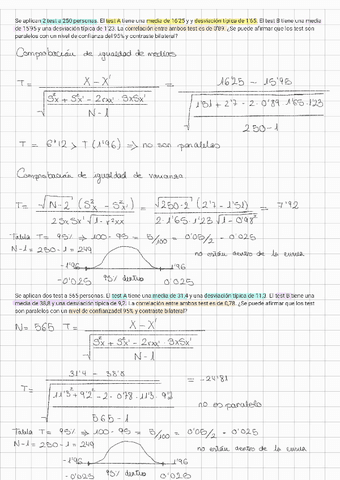 Se aplican 2 test a 250 personas. El test A tiene una media de 16'25 y y desviación típica de 1'65. El test B tiene una media
de 15'95 y una desviación típica de 1'23. La correlación entre ambos test es de 0'89. ¿Se puede afirmar que los test son
paralelos con un nivel de confianza del 95% y contraste bilateral?
Comprobación de igualdad de medias
T = X - X' / √(S²x + S²x' - 2rxx' · SxSx' / N-1) = 16'25 - 15'95 / √(1'51 + 2'7 - 2·0'89·1'65·1'23 / 250-1)
T = 6'12 > T (1'96) ⇒ no son paralelos
Comprobación de igualdad de varianza
T = √N-2 (S²x - S²x') / 2SxSx' √1-r²xx = √250-2 (2'7 - 1'51) / 2·1'65·1'23 √1-0'98² = 7'92
Tabla T = 95% ⇒ 100-95 = 5/100 = 0'05/2 = 0'025
N-1 = 250-1 = 249
no están dentro de la curva
-1'96 1'96
-0'025 95% dentro 0'025
Se aplican dos test a 565 personas. El test A tiene una media de 31,4 y una desviación típica de 11,3. El test B tiene una media
de 38,8 y una desviación típica de 9,2. La correlación entre ambos test es de 0,78. ¿Se puede afirmar que los test
son paralelos con un nivel de confianza del 95% y contraste bilateral?
N = 565 T = X - X' / √(S²x + S²x' - 2rxx' · SxSx' / N-1)
T = 31'4 - 38'8 / √(11'3² + 9'2² - 2·0'78·11'3·9'2 / 565-1) = -24'81
no es paralelo
Tabla T = 95% ⇒ 100-95 = 5/100 = 0'05/2 = 0'025
N-1 = 250-1 = 249
no están dentro de la curva
-1'96 1'96
-0'025 95% dentro 0'025